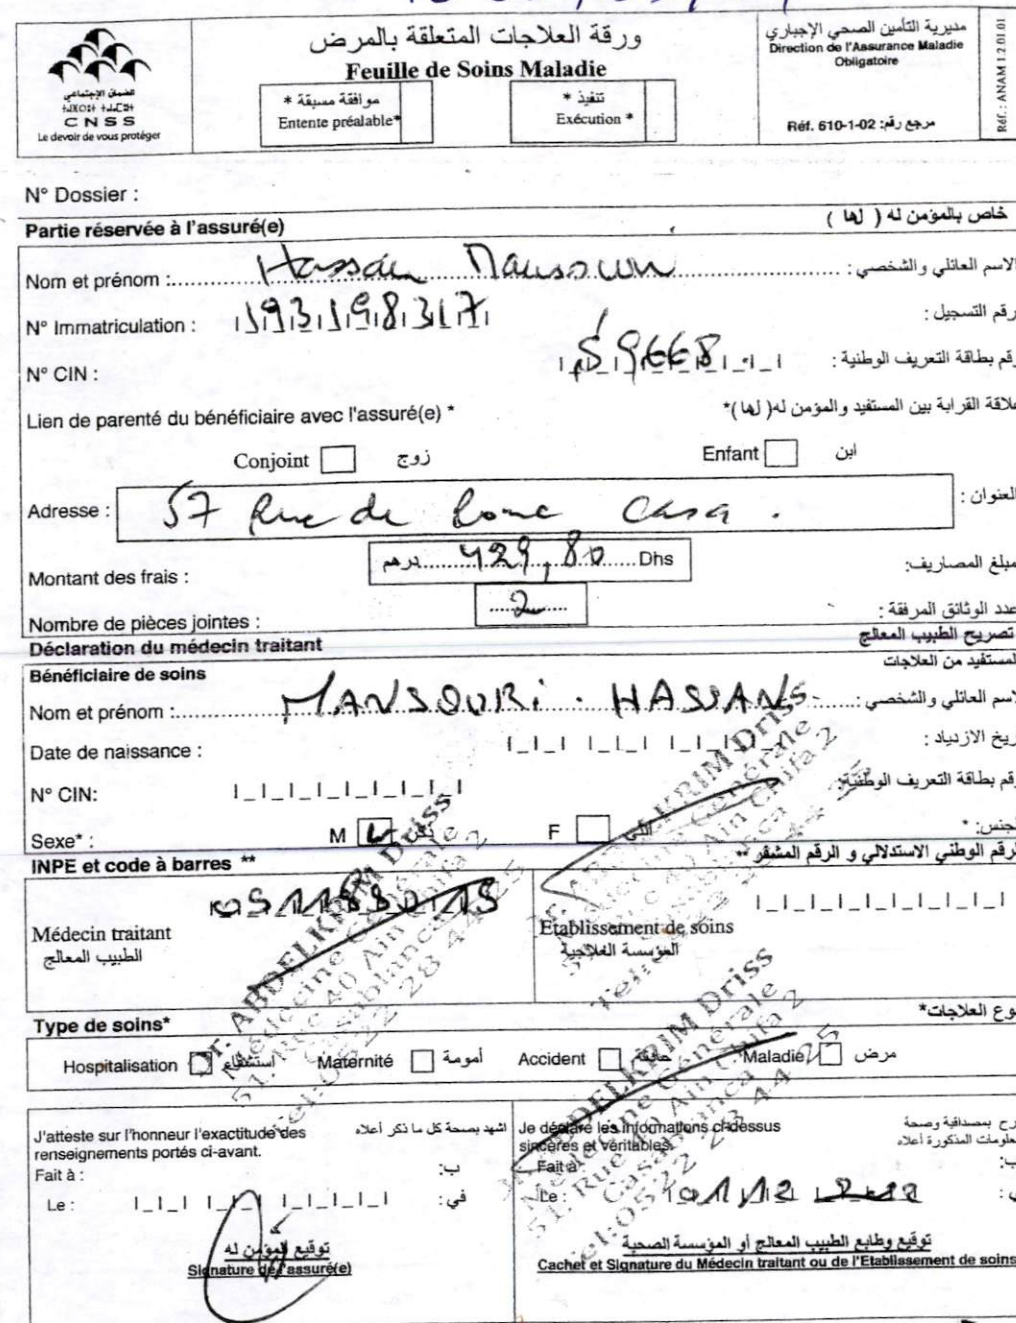 ورقة العلاجات المتعلقة بالمرض
Feuille de Soins Maladie
مديرية التأمين الصحي الإجباري
Direction de l'Assurance Maladie
Obligatoire
الضمان الإجتماعي
CNSS
Le devoir de vous protéger
موافقة مسبقة *
Entente préalable*
تنفيذ *
Exécution *
Réf. 610-1-02 مرجع رقم:
Réf.: ANAM 1.2.01.01
N° Dossier :
Partie réservée à l'assuré(e) خاص بالمؤمن له ( لها )
Nom et prénom : Hassan Mansouri الاسم العائلي والشخصي :
N° Immatriculation : 193198317 رقم التسجيل :
N° CIN : 59668 رقم بطاقة التعريف الوطنية :
Lien de parenté du bénéficiaire avec l'assuré(e) * علاقة القرابة بين المستفيد والمؤمن له( لها )*
Conjoint زوج Enfant ابن
Adresse : 57 Rue de Rome Casa . العنوان :
Montant des frais : درهم 429,80 Dhs مبلغ المصاريف:
Nombre de pièces jointes : 2 عدد الوثائق المرفقة :
Déclaration du médecin traitant تصريح الطبيب المعالج
Bénéficiaire de soins المستفيد من العلاجات
Nom et prénom : MANSOURI . HASSAN الاسم العائلي والشخصي :
Date de naissance : تاريخ الازدياد :
N° CIN: رقم بطاقة التعريف الوطنية:
Sexe* : M ذكر F أنثى الجنس: *
INPE et code à barres ** الرقم الوطني الاستدلالي و الرقم المشفر **
Médecin traitant
الطبيب المعالج
Etablissement de soins
المؤسسة العلاجية
Dr. ABDELKRIM Driss
Médecine Générale
51. Rue 40 Ain Chifa 2
Casablanca
Tel:0522 28 44 25
Type de soins* نوع العلاجات*
Hospitalisation استشفاء Maternité أمومة Accident حادثة Maladie مرض
J'atteste sur l'honneur l'exactitude des اشهد بصحة كل ما ذكر أعلاه
renseignements portés ci-avant.
Fait à : ب:
Le : في :
توقيع المؤمن له
Signature de l'assuré(e)
Je déclare les informations ci-dessus
sincères et véritables
Fait à
Le :
توقيع وطابع الطبيب المعالج أو المؤسسة الصحية
Cachet et Signature du Médecin traitant ou de l'Etablissement de soins